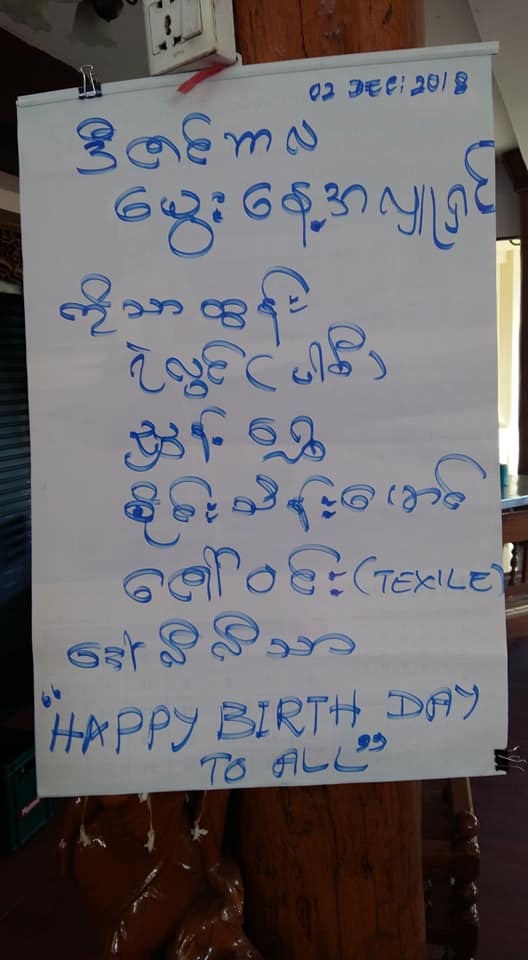 02 DEC: 2018
ဒီဇင်ဘာလ
မွေးနေ့အလှူရှင်
ကိုသာထွန်း
ရဲလွင် (ပါစီ)
ညွှန့်ရွှေ
စိုင်းသိန်းမောင်
ဇော်ဝင်း (TEXILE)
ဒေါ်လီလီသာ
"HAPPY BIRTH DAY
TO ALL"